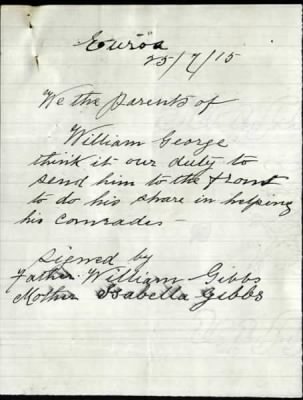 Euroa
25/7/15
We the parents of
William George
think it our duty to
send him to the front
to do his share in helping
his comrades -
Signed by
Father. William Gibbs
Mother Isabella Gibbs